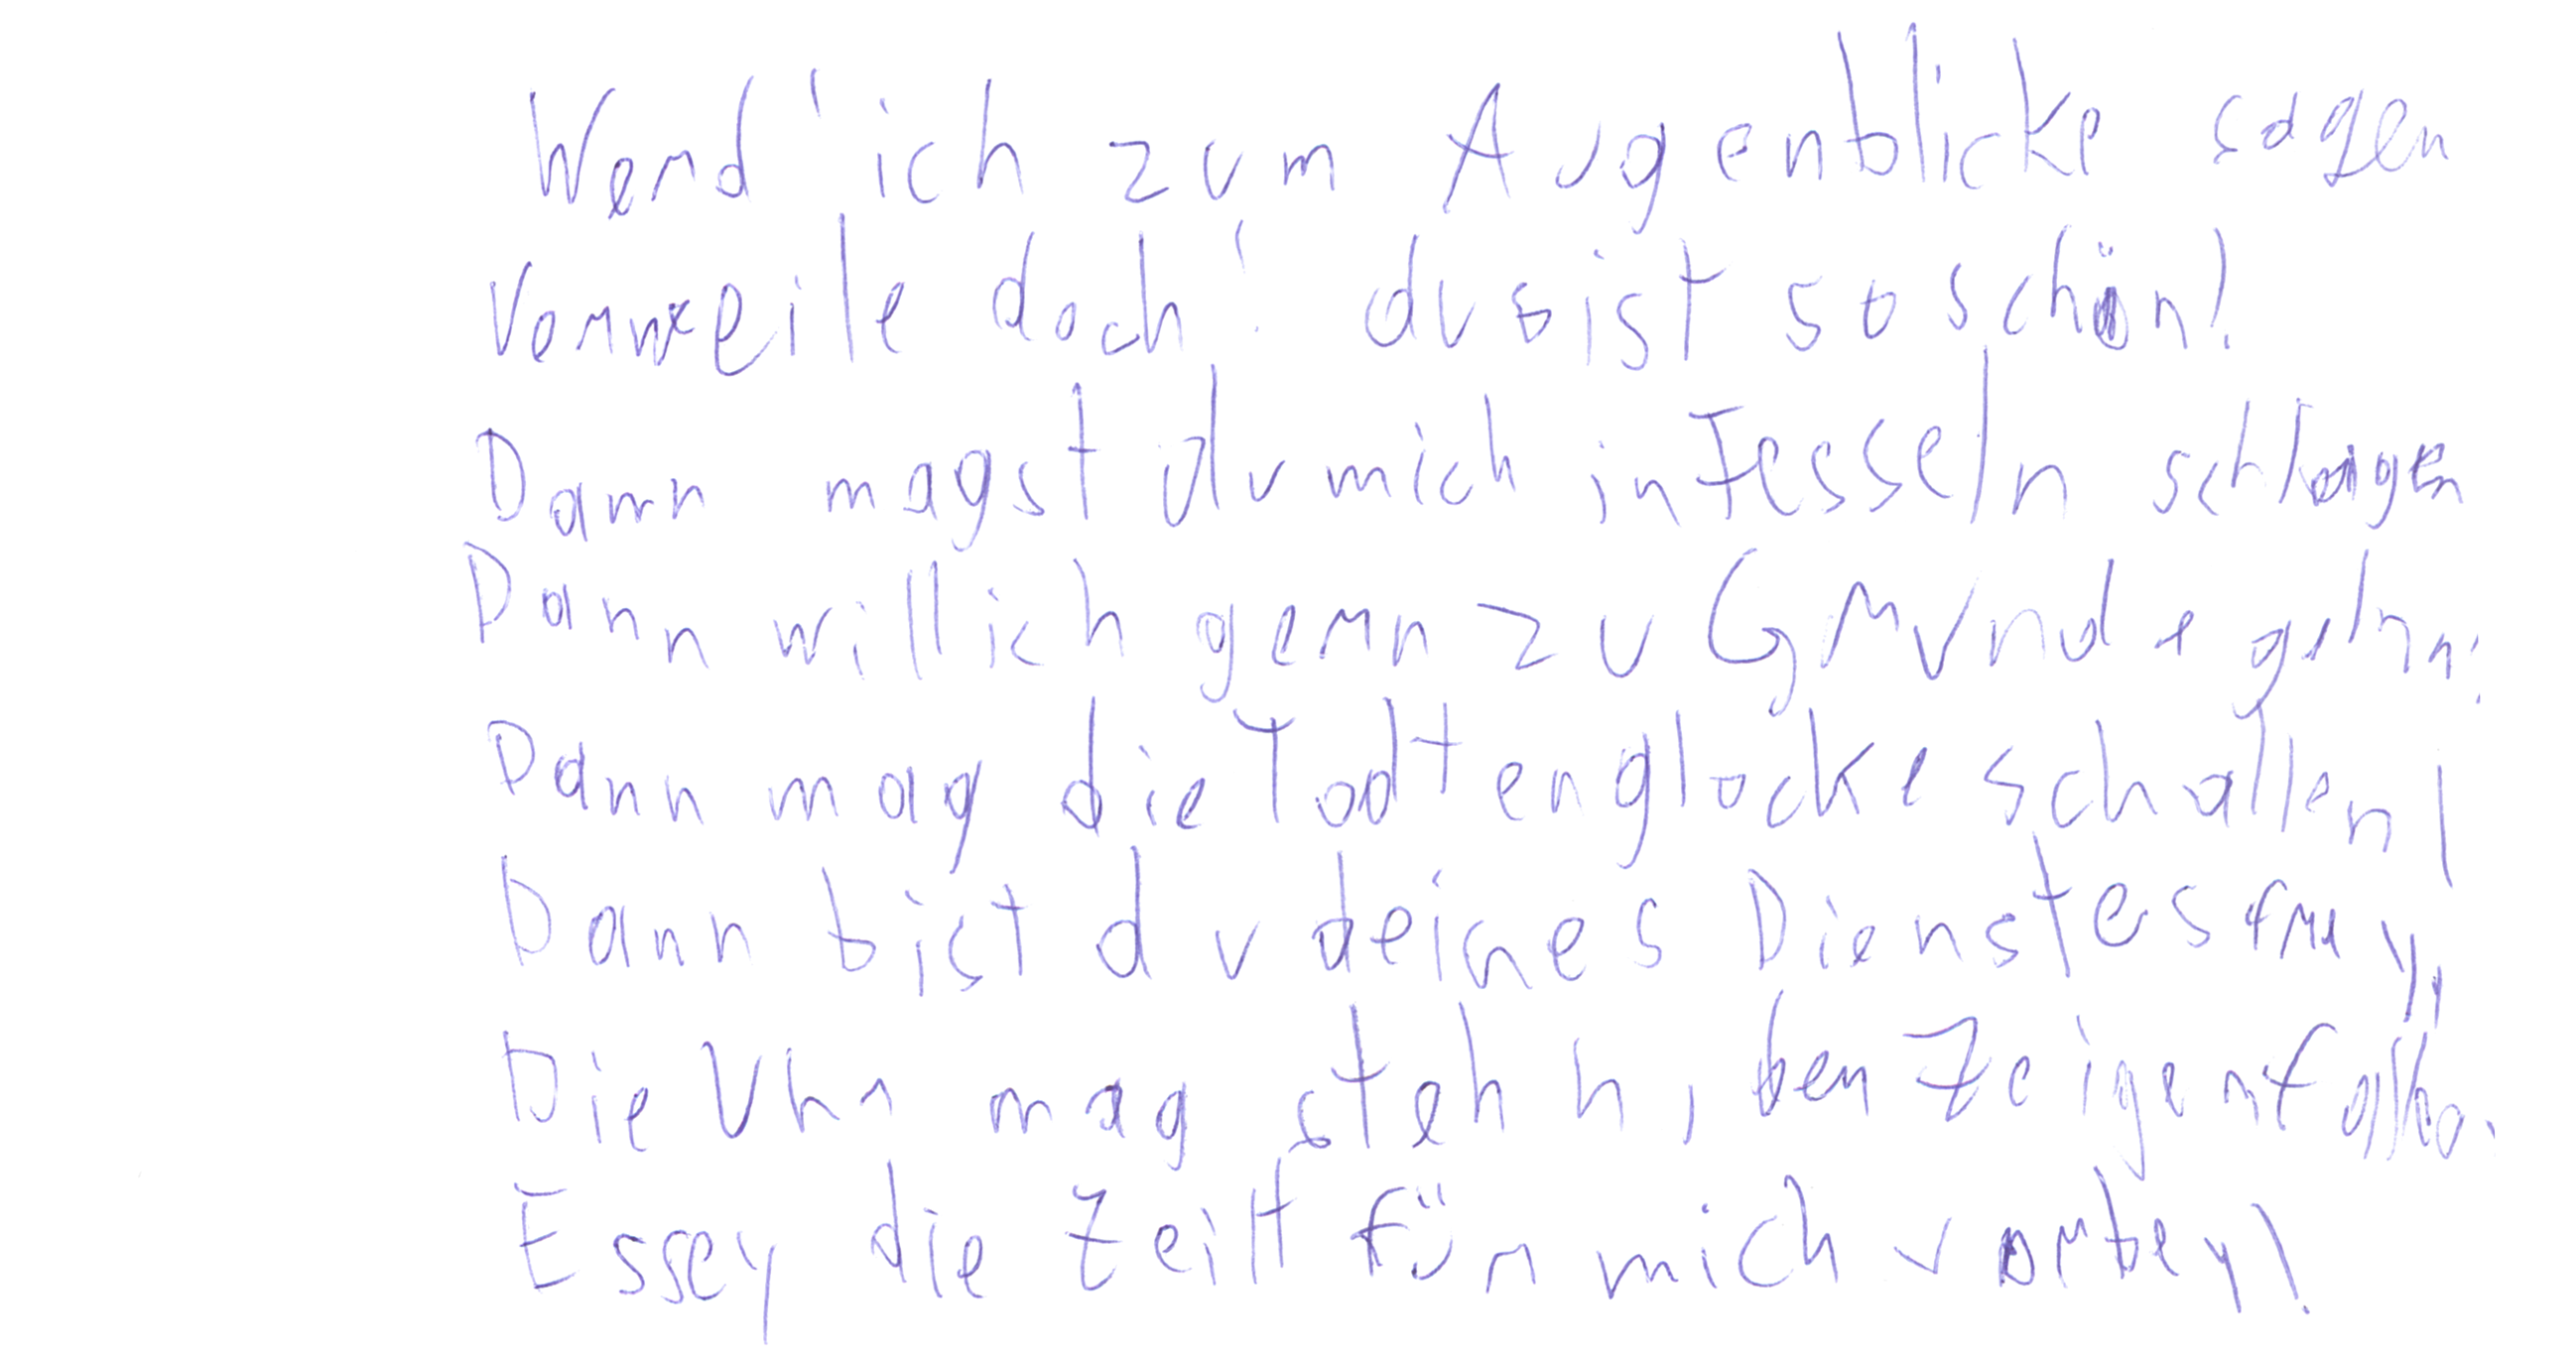 Werd' ich zum Augenblicke sagen
Verweile doch! du bist so schön!
Dann magst du mich in Fesseln schlagen
Dann will ich gern zu Grunde gehn!
Dann mag die Todtenglocke schallen,
Dann bist du deines Dienstes frey,
Die Uhr mag stehn, der Zeiger
Es sey die Zeit für mich vorbey!